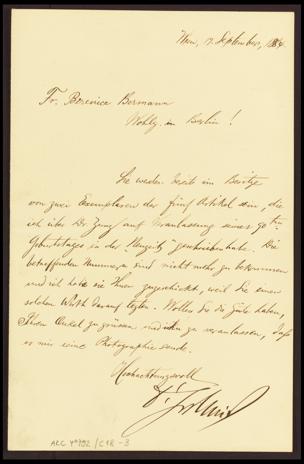 Wien, 17. September, 1884.
Fr. Berenice Bermann
Wohlg. in Berlin!
Sie werden bereits im Besitze
von zwei Exemplaren der fünf Artikel sein, die
ich über Dr Zunz auf Veranlassung seines 90 ten
Geburtstages in der "Neuzeit" geschrieben habe. Die
betreffenden Nummern sind nicht mehr zu bekommen
und ich habe sie Ihnen zugeschickt, weil Sie einen
solchen Werth darauf legten. Wollen Sie die Güte haben,
Ihren Onkel zu grüssen und ihn zu veranlassen, daß
er mir seine Photographie sende.
Hochachtungsvoll
ARC 4º792/C18-3